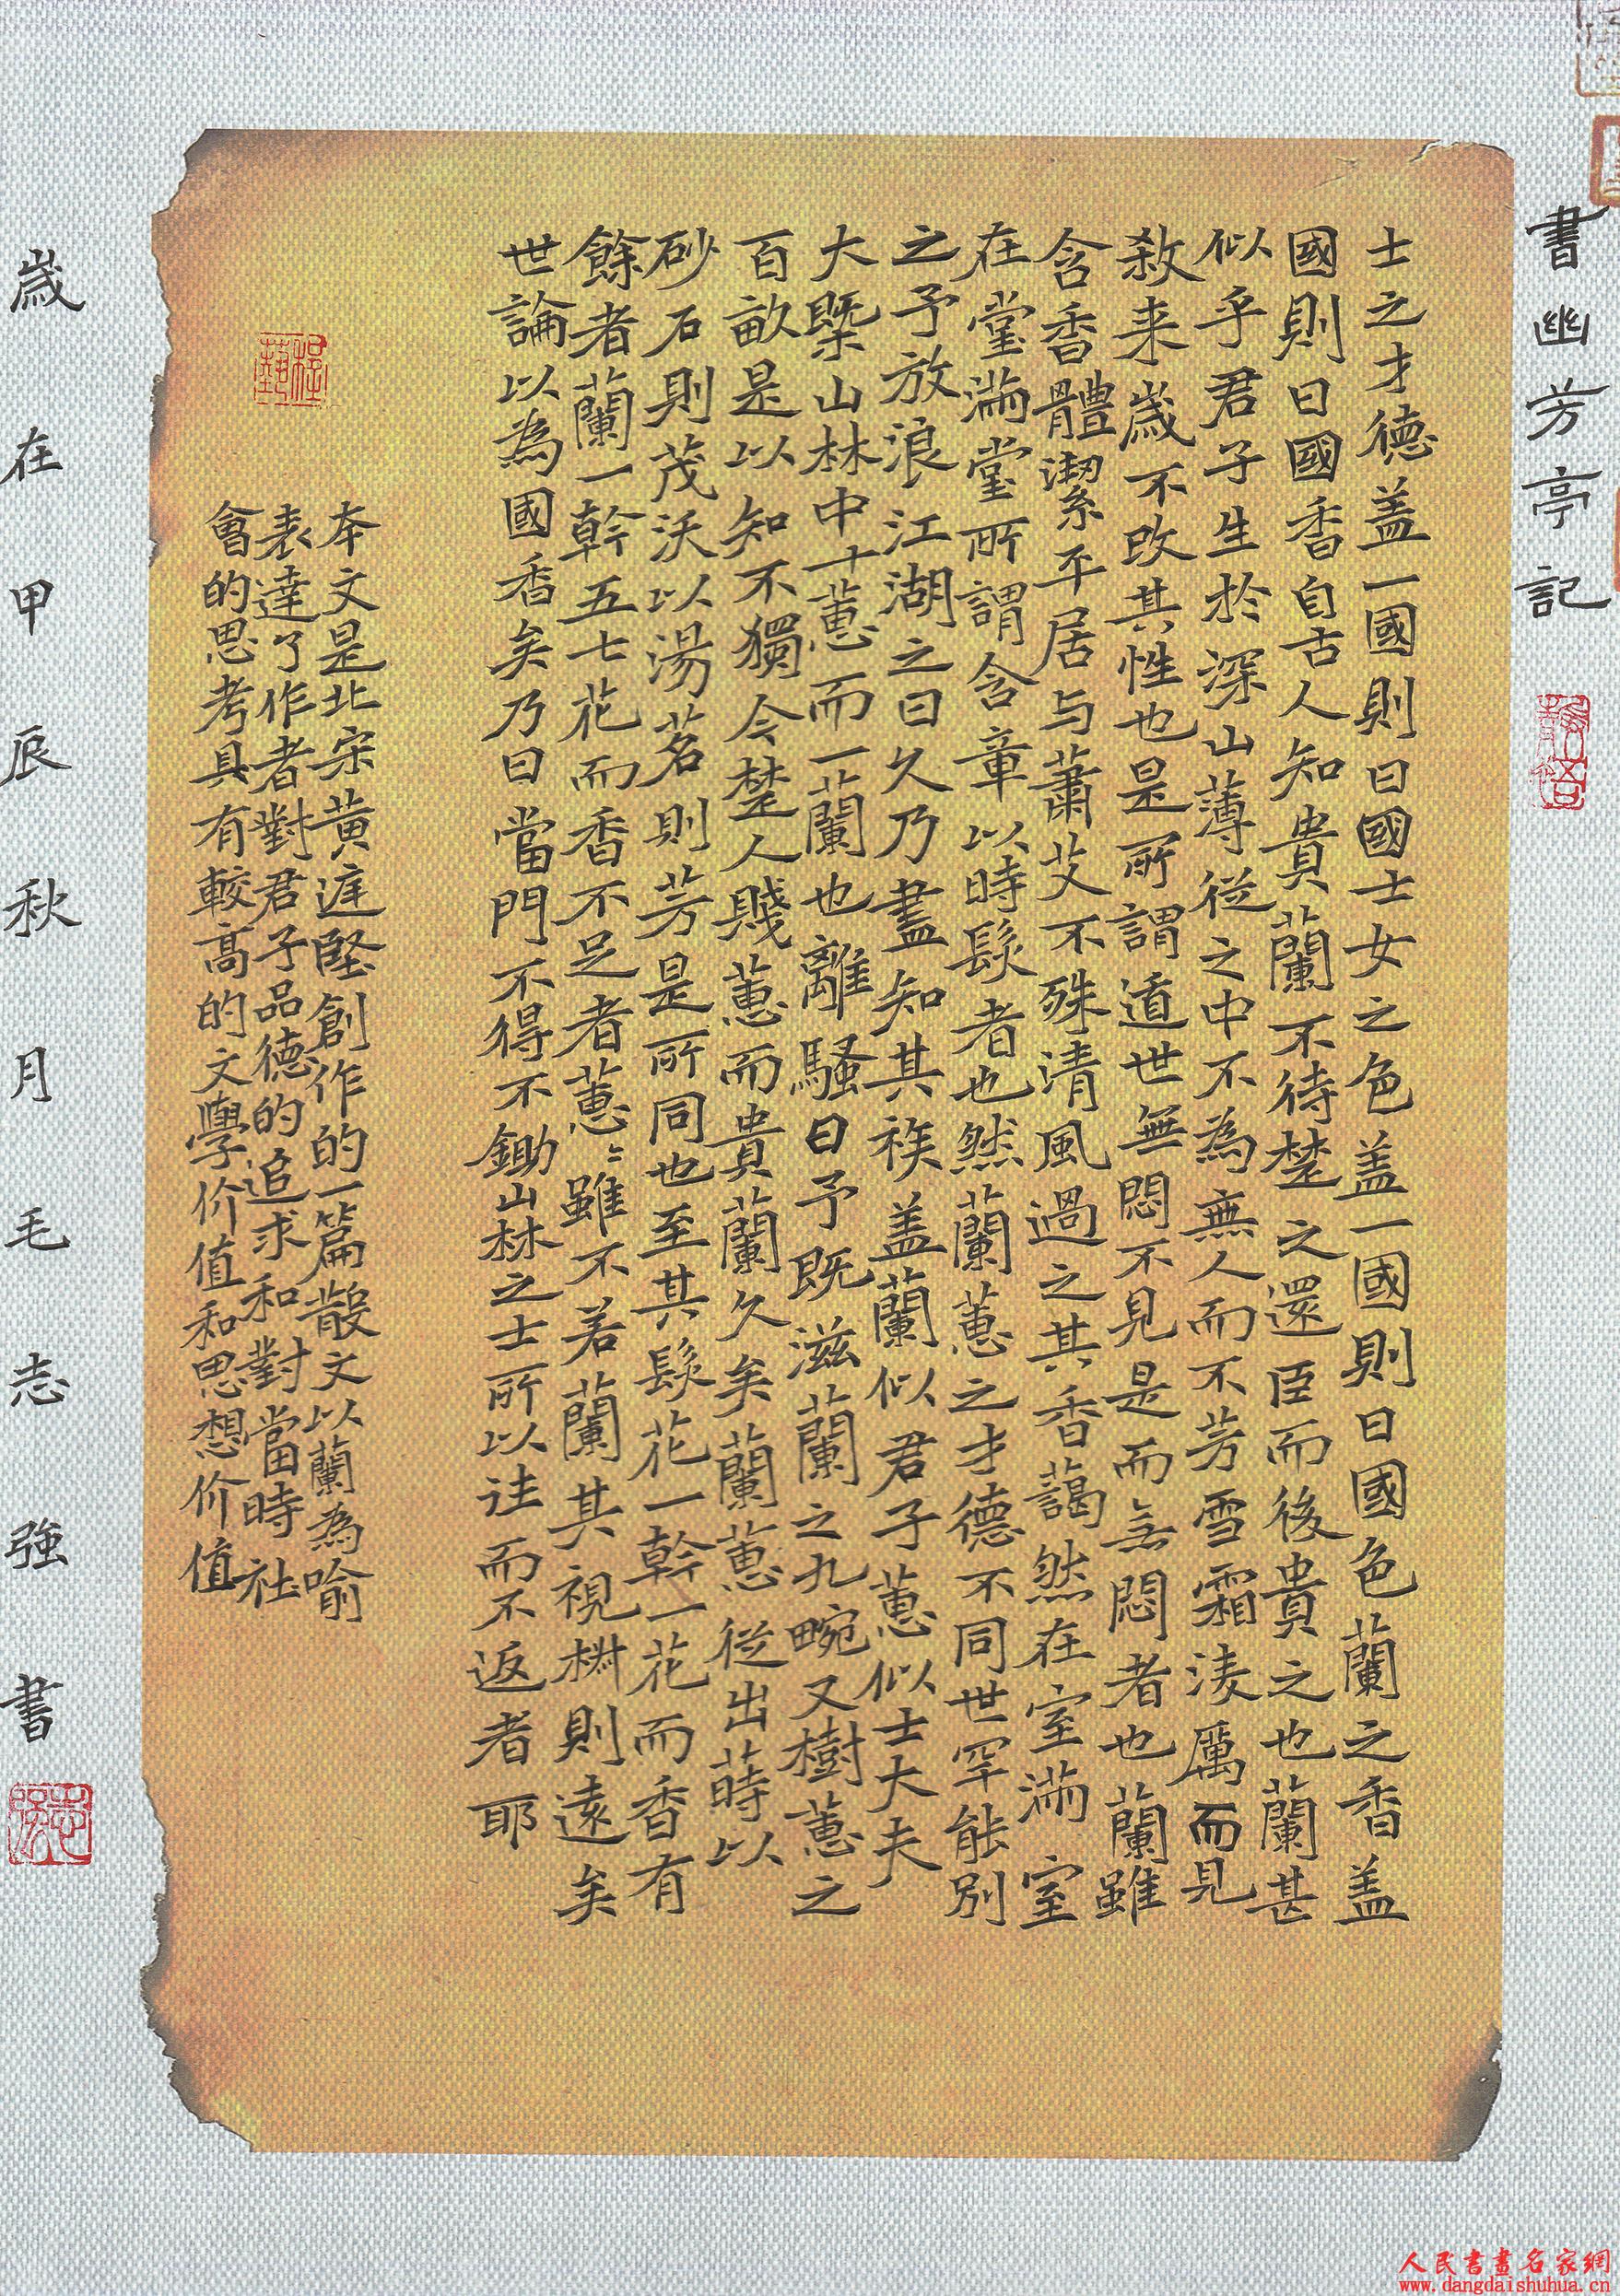 書幽芳亭記
士之才德盖一國則曰國士女之色盖一國則曰國色蘭之香盖
國則曰國香自古人知貴蘭不待楚之還臣而後貴之也蘭甚
似乎君子生於深山薄從之中不為無人而不芳雪霜淩厲而見
殺来歲不改其性也是所謂遁世無悶不見是而無悶者也蘭雖
含香體潔平居与蕭艾不殊清風過之其香藹然在室滿室
在堂滿堂所謂含章以時髮者也然蘭蕙之才德不同世罕能別
之予放浪江湖之日久乃盡知其族盖蘭似君子蕙似士大夫
大槩山林中十蕙而一蘭也離騷曰予既滋蘭之九畹又樹蕙之
百畝是以知不獨今楚人賤蕙而貴蘭久矣蘭蕙從出蒔以
砂石則茂沃以湯茗則芳是所同也至其髮花一幹一花而香有
餘者蘭一幹五七花而香不足者蕙〻雖不若蘭其視椒則遠矣
世論以為國香矣乃曰當門不得不鋤山林之士所以往而不返者耶
本文是北宋黄庭堅創作的一篇散文以蘭為喻
表達了作者對君子品德的追求和對當時社
會的思考具有較高的文學价值和思想价值
歲在甲辰秋月毛志強書
人民書畫名家網
www.dangdaishuhua.cn